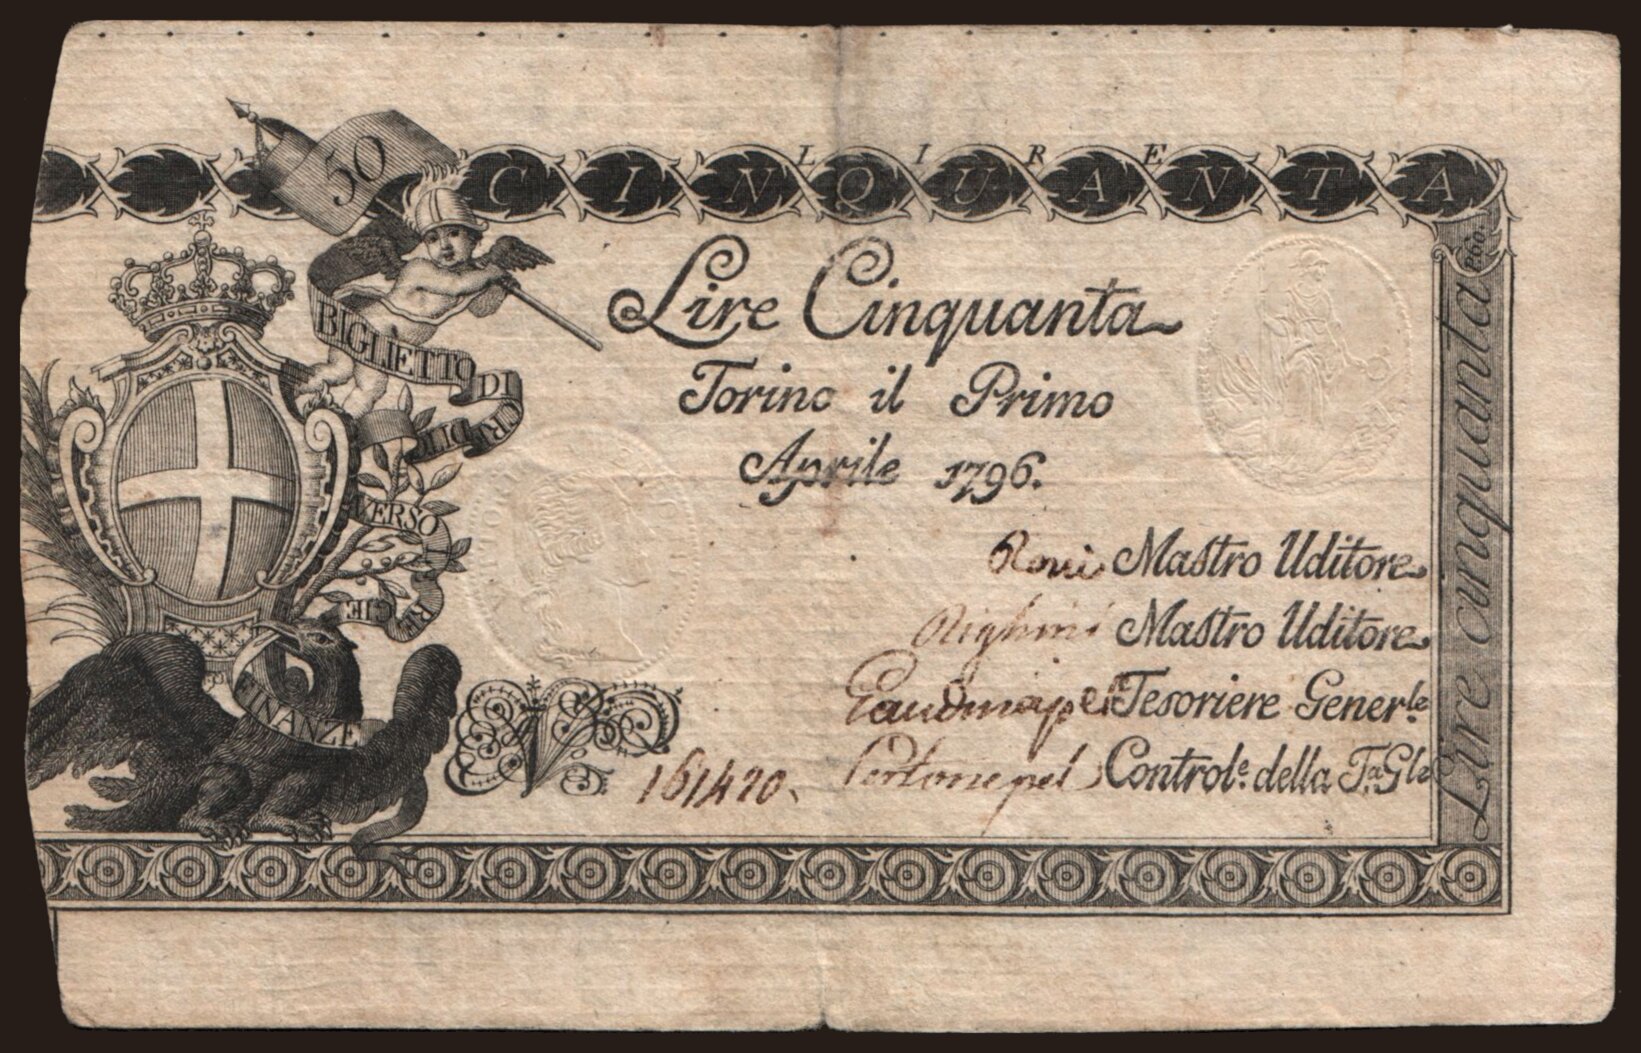 LIRE
CINQUANTA
50
BIGLIETTO DI CREDITO
VERSO LE
REGIE
FINANZE
Lire Cinquanta
Torino il Primo
Aprile 1796.
Mastro Uditore
Righini Mastro Uditore
Tesoriere Gener.le
161420. Control.e della T.a G.le
Lire cinquanta